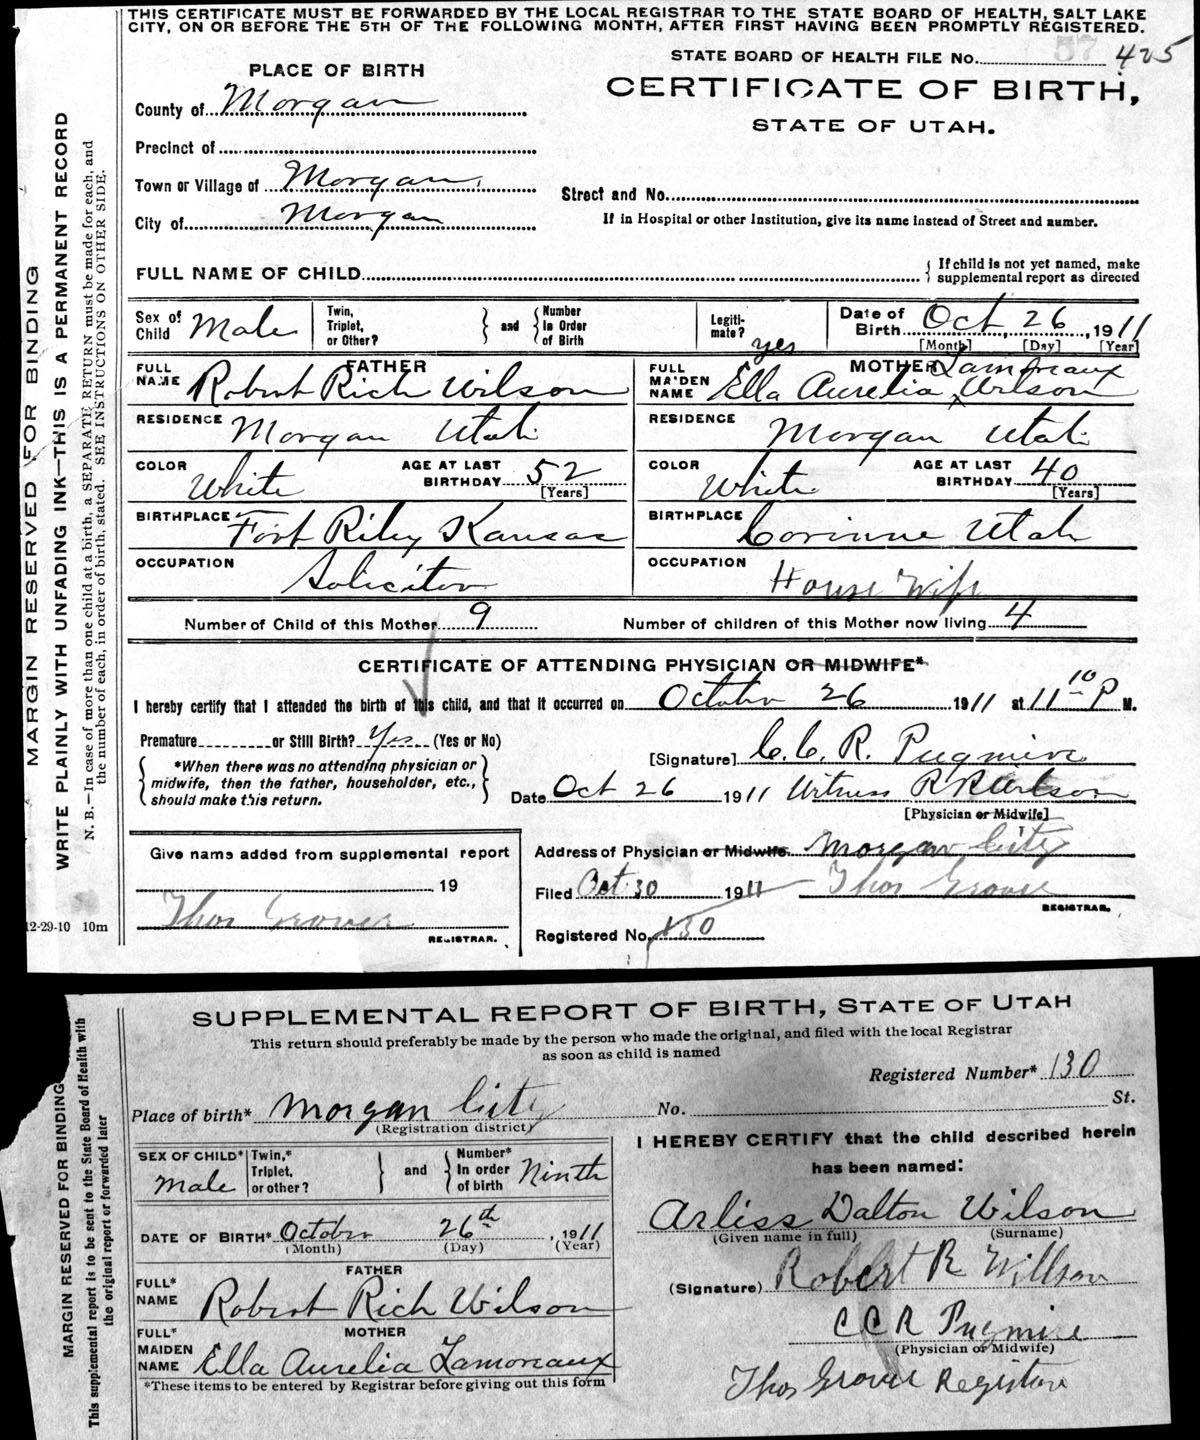 THIS CERTIFICATE MUST BE FORWARDED BY THE LOCAL REGISTRAR TO THE STATE BOARD OF HEALTH, SALT LAKE
CITY, ON OR BEFORE THE 5TH OF THE FOLLOWING MONTH, AFTER FIRST HAVING BEEN PROMPTLY REGISTERED.
STATE BOARD OF HEALTH FILE No. 57 425
CERTIFICATE OF BIRTH,
STATE OF UTAH.
PLACE OF BIRTH
County of Morgan
Precinct of
Town or Village of Morgan
City of Morgan
Street and No.
If in Hospital or other Institution, give its name instead of Street and number.
FULL NAME OF CHILD
{ If child is not yet named, make
supplemental report as directed
Sex of Child Male
Twin, Triplet, or Other? } and { Number In Order of Birth
Legiti-mate? yes
Date of Birth Oct 26, 1911
[Month] [Day] [Year]
FATHER
FULL NAME Robert Rich Wilson
RESIDENCE Morgan Utah
COLOR White AGE AT LAST BIRTHDAY 52 [Years]
BIRTHPLACE Fort Riley Kansas
OCCUPATION Solicitor
MOTHER
FULL MAIDEN NAME Ella Aurelia Lamoreaux Wilson
RESIDENCE Morgan Utah
COLOR White AGE AT LAST BIRTHDAY 40 [Years]
BIRTHPLACE Corinne Utah
OCCUPATION House Wife
Number of Child of this Mother 9 Number of children of this Mother now living 4
CERTIFICATE OF ATTENDING PHYSICIAN OR MIDWIFE*
I hereby certify that I attended the birth of this child, and that it occurred on October 26 1911 at 11 10 P M.
Premature or Still Birth? Yes (Yes or No)
{ *When there was no attending physician or
midwife, then the father, householder, etc.,
should make this return. }
[Signature] C. C. R. Pugmire
Date Oct 26 1911 Witness R R Wilson
[Physician or Midwife]
Give name added from supplemental report
19
Thos Grover
REGISTRAR.
Address of Physician or Midwife Morgan City
Filed Oct 30 1911 Thos Grover
REGISTRAR.
Registered No. 130
MARGIN RESERVED FOR BINDING
WRITE PLAINLY WITH UNFADING INK—THIS IS A PERMANENT RECORD
N. B.—In case of more than one child at a birth, a SEPARATE RETURN must be made for each, and
the number of each, in order of birth, stated. SEE INSTRUCTIONS ON OTHER SIDE.
12-29-10 10m
SUPPLEMENTAL REPORT OF BIRTH, STATE OF UTAH
This return should preferably be made by the person who made the original, and filed with the local Registrar
as soon as child is named
Registered Number* 130
Place of birth* Morgan City No. St.
(Registration district)
SEX OF CHILD* Male
Twin,* Triplet, or other? } and { Number* In order of birth Ninth
DATE OF BIRTH* October 26th, 1911
(Month) (Day) (Year)
FATHER
FULL* NAME Robert Rich Wilson
MOTHER
FULL* MAIDEN NAME Ella Aurelia Lamoreaux
*These items to be entered by Registrar before giving out this form
I HEREBY CERTIFY that the child described herein
has been named:
Arliss Dalton Wilson
(Given name in full) (Surname)
(Signature) Robert R Willson
C C R Pugmire
(Physician or Midwife)
Thos Grover Registrar
MARGIN RESERVED FOR BINDING
This supplemental report is to be sent to the State Board of Health with
the original report or forwarded later